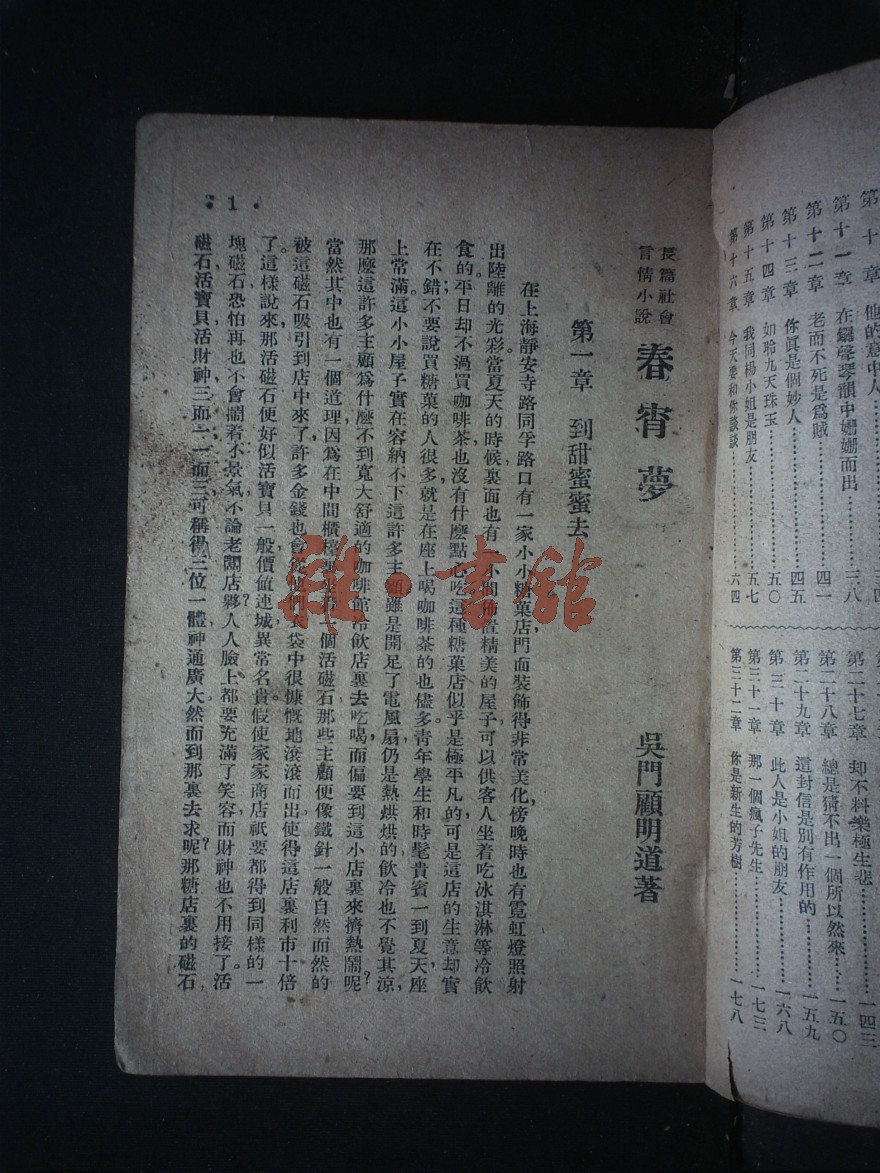 第十章 他的意中人
第十一章 在鋼聲琴韻中姍姍而出……三八
第十二章 老而不死是爲賊……四一
第十三章 你眞是個妙人……四五
第十四章 如聆九天珠玉……五〇
第十五章 我同楊小姐是朋友……五七
第十六章 今天要和你談談……六四
第二十七章 却不料樂極生悲……一四三
第二十八章 總是猜不出一個所以然來……一五〇
第二十九章 這封信是別有作用的……一五九
第三十章 此人是小姐的朋友……一六八
第三十一章 那一個瘋子先生……一七三
第三十二章 你是新生的芳樹……一七八
長篇社會
言情小說
春宵夢
吳門顧明道著
第一章 到甜蜜蜜去
在上海靜安寺路同孚路口有一家小小糖菓店，門面裝飾得非常美化，傍晚時也有霓虹燈照射
出陸離的光彩。當夏天的時候，裏面也有一小間佈置精美的屋子，可以供客人坐着吃冰淇淋等冷飲
食的，平日却不過買咖啡茶，也沒有什麼點心吃，這種糖菓店似乎是極平凡的，可是這店的生意却實
在不錯，不要說買糖菓的人很多，就是在座上喝咖啡茶的也儘多青年學生和時髦貴賓，一到夏天，座
上常滿，這小小屋子實在容納不下這許多主顧，雖是開足了電風扇，仍是熱烘烘的，飲冷也不覺其涼，
那麼這許多主顧爲什麼不到寬大舒適的咖啡館冷飲店裏去吃喝，而偏要到這小店裏來擠熱鬧呢？
當然其中也有一個道理，因爲在中間櫃檯裏坐着一個活磁石，那些主顧便像鐵針一般自然而然的
被這磁石吸引到店中來了，許多金錢也會從他們衣袋中很慷慨地滾滾而出，使得這店裏利市十倍
了。這樣說來，那活磁石便好似活寶貝一般，價值連城，異常名貴。假使家家商店祇要都得到同樣的一
塊磁石，恐怕再也不會鬧着不景氣，不論老闆店夥，人人臉上都要充滿了笑容，而財神也不用接了。活
磁石活寶貝活財神，三而一，一而三，可稱得三位一體，神通廣大，然而到那裏去求呢？那糖店裏的磁石，
• 1 •
雜·書館